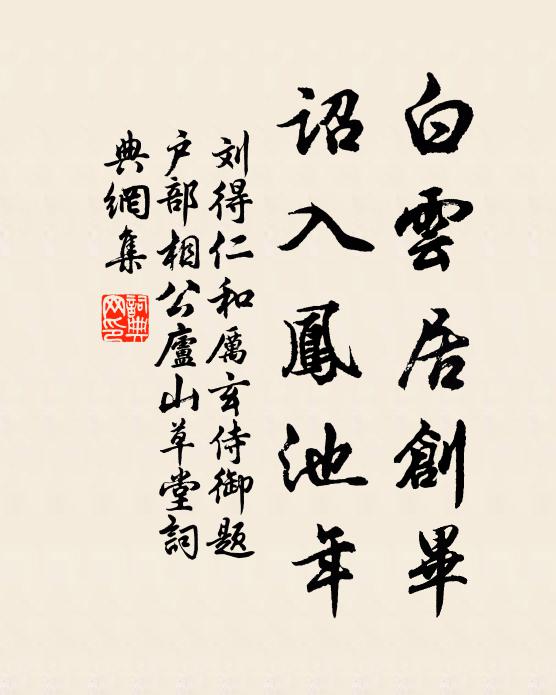 白雲居創畢
詔入鳳池年
刘得仁和厲玄侍御题
户部相公廬山草堂詞
典網集
詞典
网印